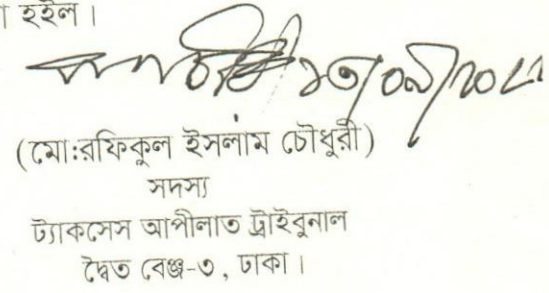 হইল।
১৩/০৯/২০
(মো:রফিকুল ইসলাম চৌধুরী)
সদস্য
ট্যাকসেস আপীলাত ট্রাইবুনাল
দ্বৈত বেঞ্জ-৩, ঢাকা।